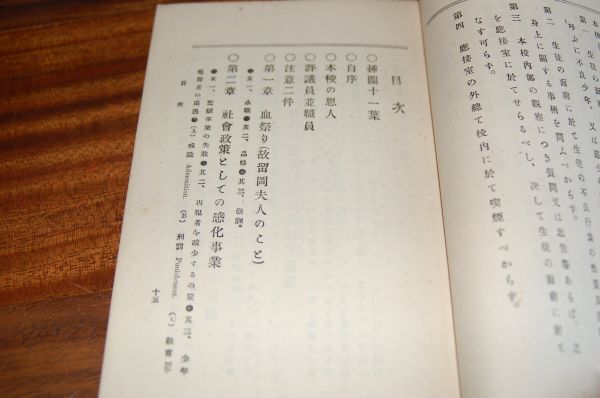 第一 生徒の面前に於て生徒の不良行為の性質及
び不良少年、又は
第二 生徒の面前に於て
身上に關する事柄を問ふべからず。
第三 本校內部の觀察につき質問又は忠吿等あらば、之
を應接室に於てせらるべし、決して生徒の面前に於て
なす可らず。
第四 應接室の外總て校內に於て喫煙すべからず。
目次
○揷圖十一葉
○自序
○本校の恩人
○評議員並職員
○注意二件
○第一章 血祭り(故留岡夫人のこと)
●其一、永眠●其二、品格●其三、敎訓。
○第二章 社會政策としての感化事業
●其一、監獄事業の失敗●其二、再犯者を減少するの策●其三、少年
犯罪者の處遇●(A)戒諭 Admonition. (B)刑罰 Punishment. (C)敎育 Ed-
目次
十五